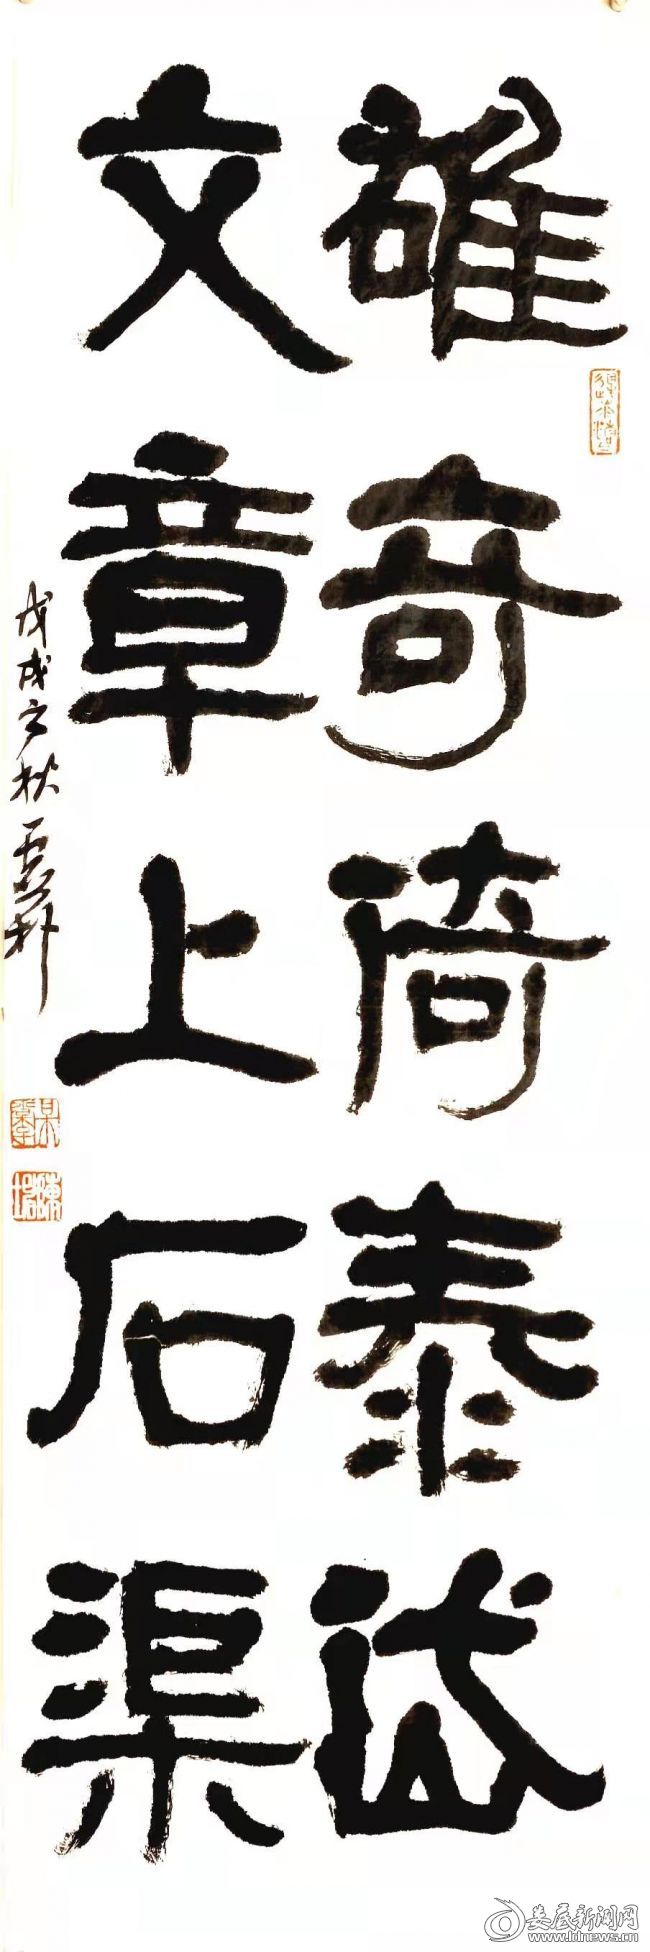 雄奇倚泰岱
文章上石渠
戊戌之秋
娄底新闻网
www.ldnews.cn